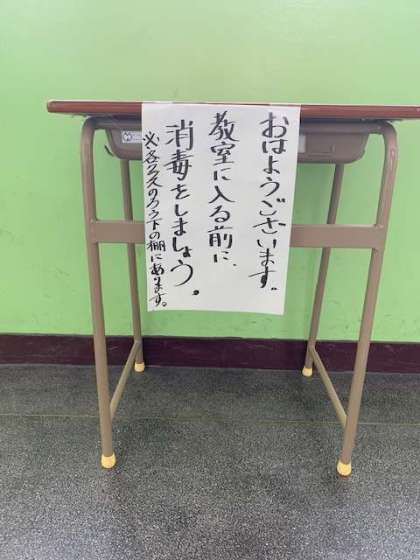 おはようございます。
教室に入る前に、
消毒をしましょう。
※各クラスのろう下の棚にあります。